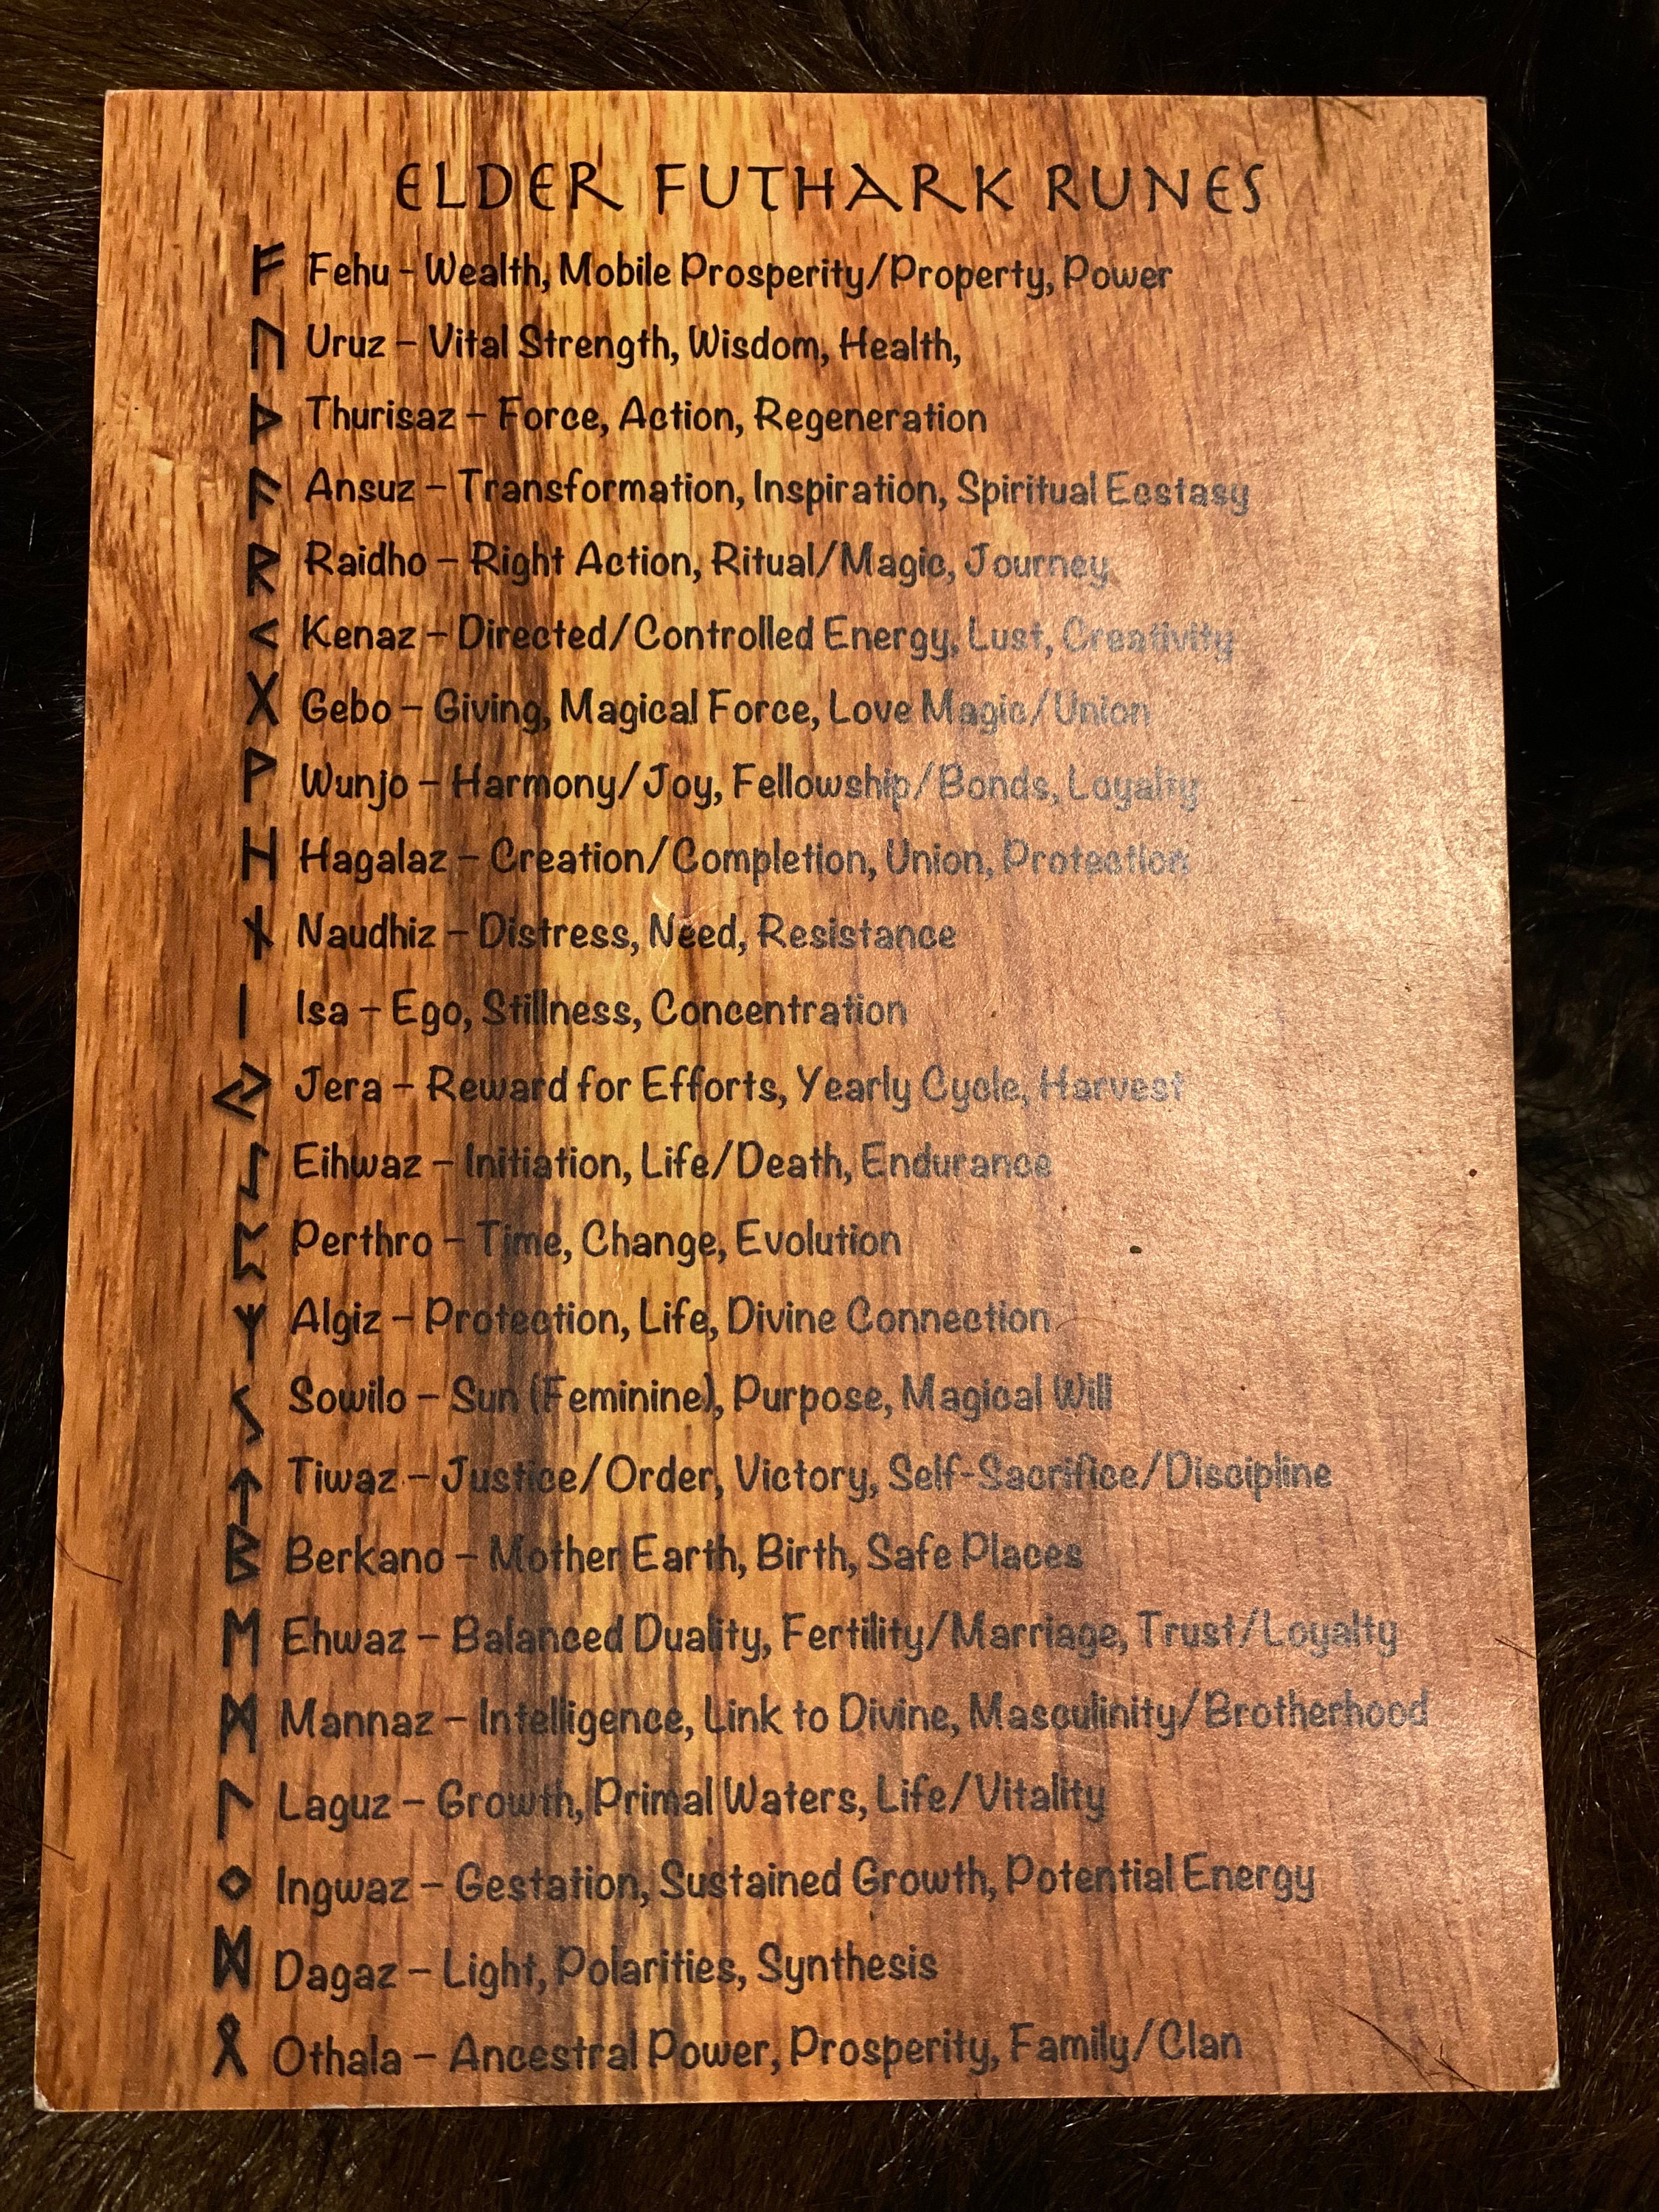 ELDER FUTHARK RUNES
ᚠ Fehu – Wealth, Mobile Prosperity/Property, Power
ᚢ Uruz – Vital Strength, Wisdom, Health,
ᚦ Thurisaz – Force, Action, Regeneration
ᚨ Ansuz – Transformation, Inspiration, Spiritual Ecstasy
ᚱ Raidho – Right Action, Ritual/Magic, Journey
ᚲ Kenaz – Directed/Controlled Energy, Lust, Creativity
ᚷ Gebo – Giving, Magical Force, Love Magic/Union
ᚹ Wunjo – Harmony/Joy, Fellowship/Bonds, Loyalty
ᚺ Hagalaz – Creation/Completion, Union, Protection
ᚾ Naudhiz – Distress, Need, Resistance
ᛁ Isa – Ego, Stillness, Concentration
ᛃ Jera – Reward for Efforts, Yearly Cycle, Harvest
ᛇ Eihwaz – Initiation, Life/Death, Endurance
ᛈ Perthro – Time, Change, Evolution
ᛉ Algiz – Protection, Life, Divine Connection
ᛊ Sowilo – Sun (Feminine), Purpose, Magical Will
ᛏ Tiwaz – Justice/Order, Victory, Self-Sacrifice/Discipline
ᛒ Berkano – Mother Earth, Birth, Safe Places
ᛖ Ehwaz – Balanced Duality, Fertility/Marriage, Trust/Loyalty
ᛗ Mannaz – Intelligence, Link to Divine, Masculinity/Brotherhood
ᛚ Laguz – Growth, Primal Waters, Life/Vitality
ᛜ Ingwaz – Gestation, Sustained Growth, Potential Energy
ᛞ Dagaz – Light, Polarities, Synthesis
ᛟ Othala – Ancestral Power, Prosperity, Family/Clan